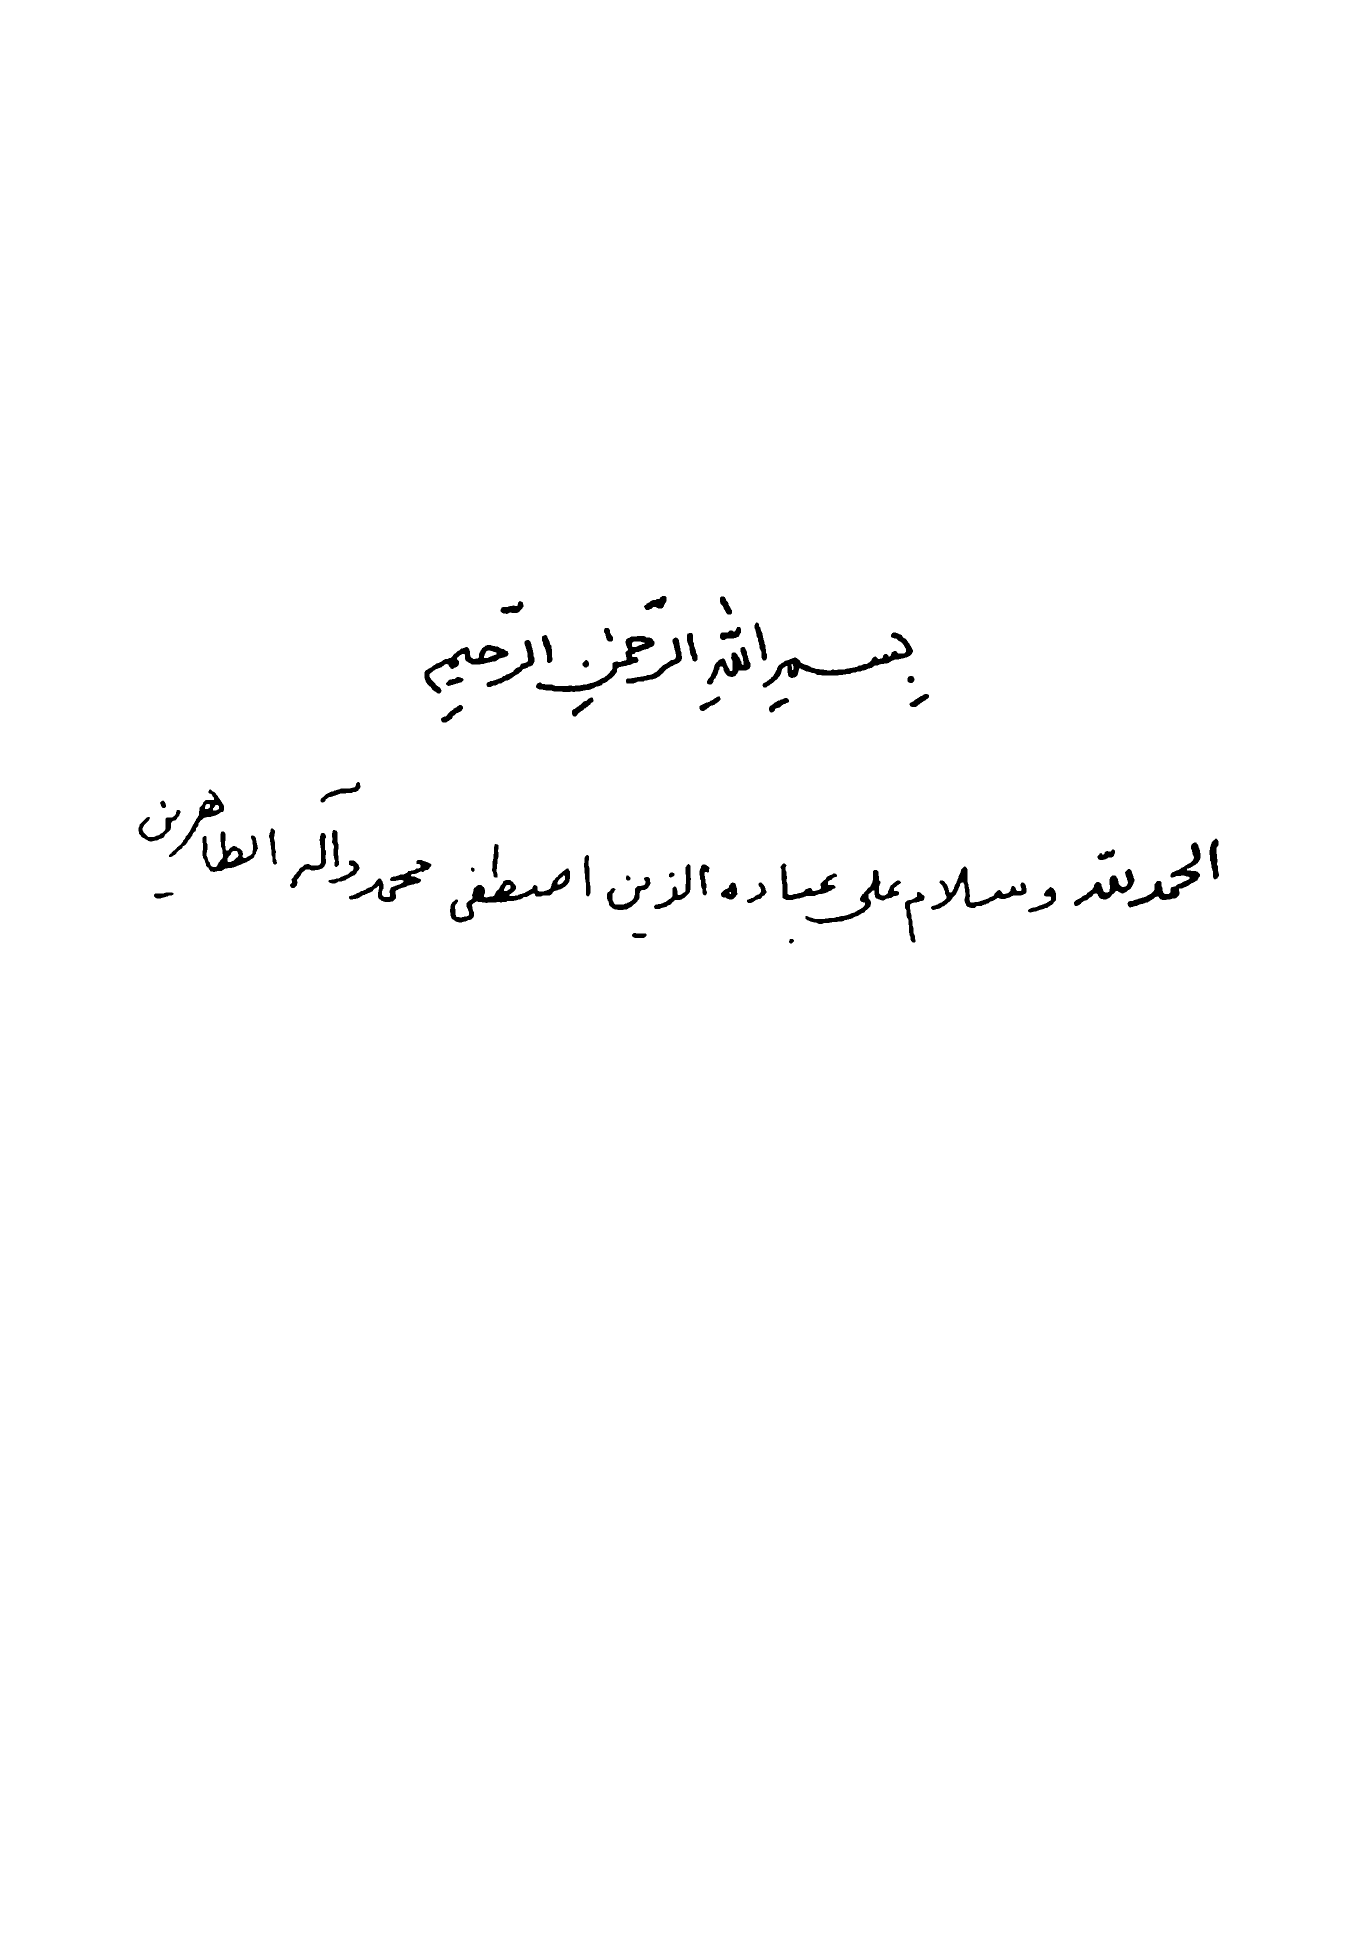 بِسمِ اللّٰهِ الرّحمٰنِ الرّحیمِ
الحمد للّه و سلام علی عباده الذین اصطفی محمد و آله الطاهرین